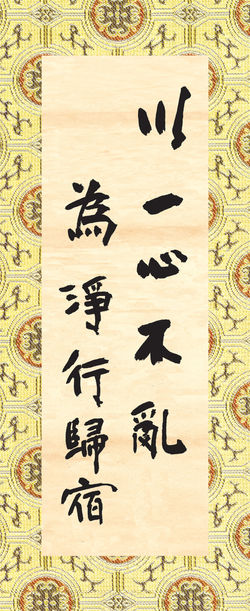 以一心不亂
為淨行歸宿